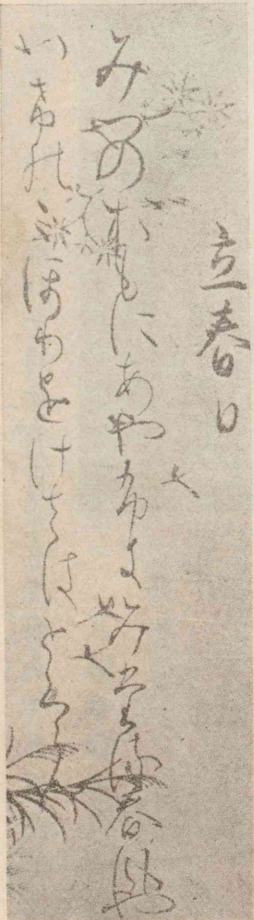 立春日
みつのおもにあやふきみたる春風や
いけのこほりをけふはとくらむ